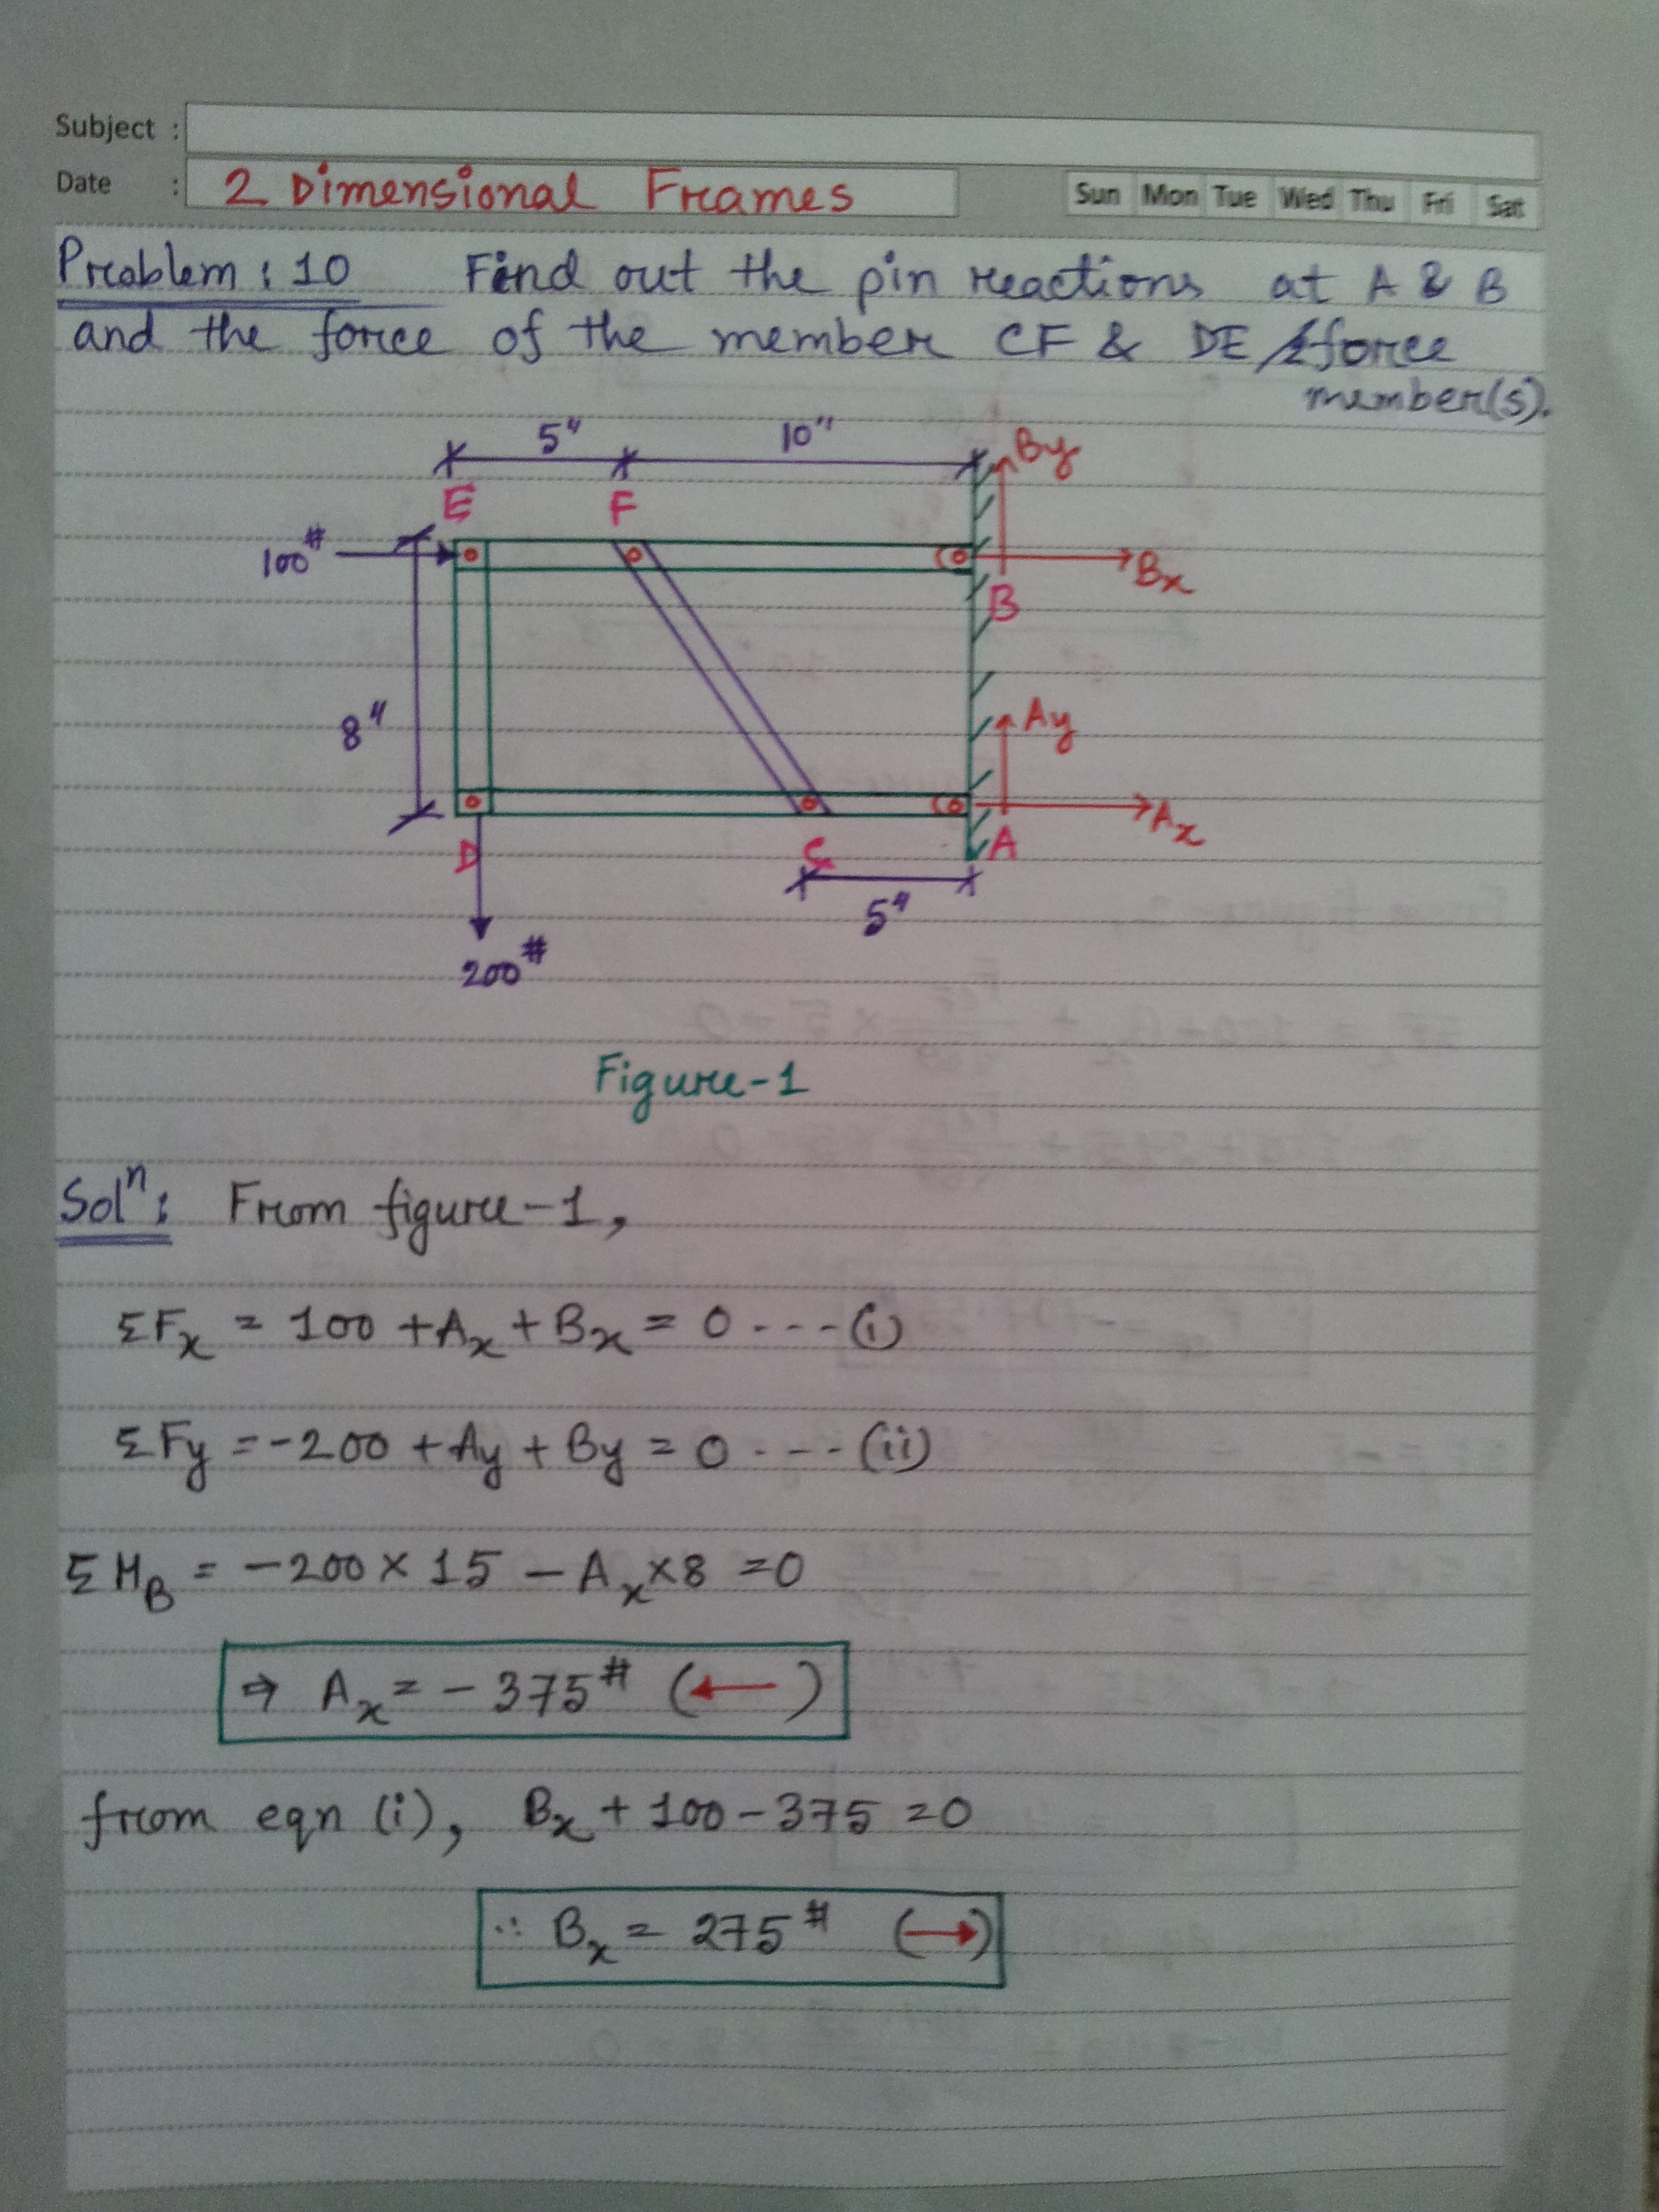 Subject :
Date : 2 Dimensional Frames
Sun Mon Tue Wed Thu Fri Sat
Problem : 10 Find out the pin reactions at A & B
and the force of the member CF & DE / 2 force
member(s).
5" 10" By
E F
100# Bx
B
8" Ay
Ax
D C A
5"
200#
Figure-1
Solⁿ: From figure-1,
ΣFx = 100 + Ax + Bx = 0 ---(i)
ΣFy = -200 + Ay + By = 0 ---(ii)
ΣMB = -200 × 15 - Ax × 8 = 0
⇒ Ax = - 375# (←)
from eqn (i), Bx + 100 - 375 = 0
∴ Bx = 275# (→)